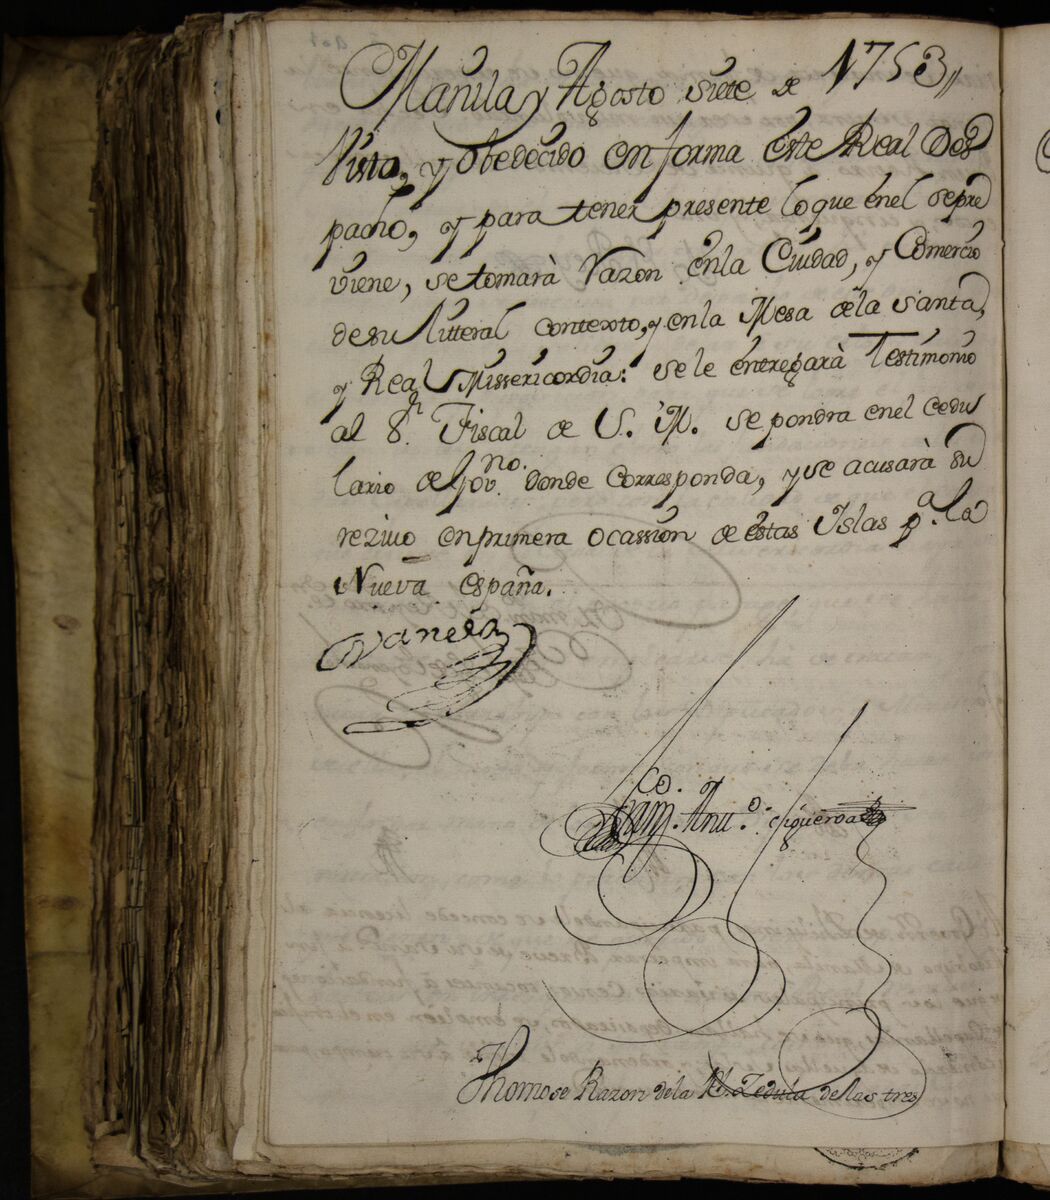 Manila y Agosto siete de 1753,,
Visto, y obedecido en forma este Real Des
pacho, y para tener presente lo que enel sepre
viene, setomarà razon enla Ciudad, y Comercio
desu litteral contexto, y enla Mesa dela Santa,
y Real Missericordia: sele entregarà Testimonio
al Sr. Fiscal de S. M. se pondra enel cedu
lario de Govno. donde corresponda, y se acusarà su
rezivo enprimera ocassion de estas Islas pa. la
Nueva españa.
Franco. Anto. Figueroa
Thomose Razon dela Rl. Zedula delas tres